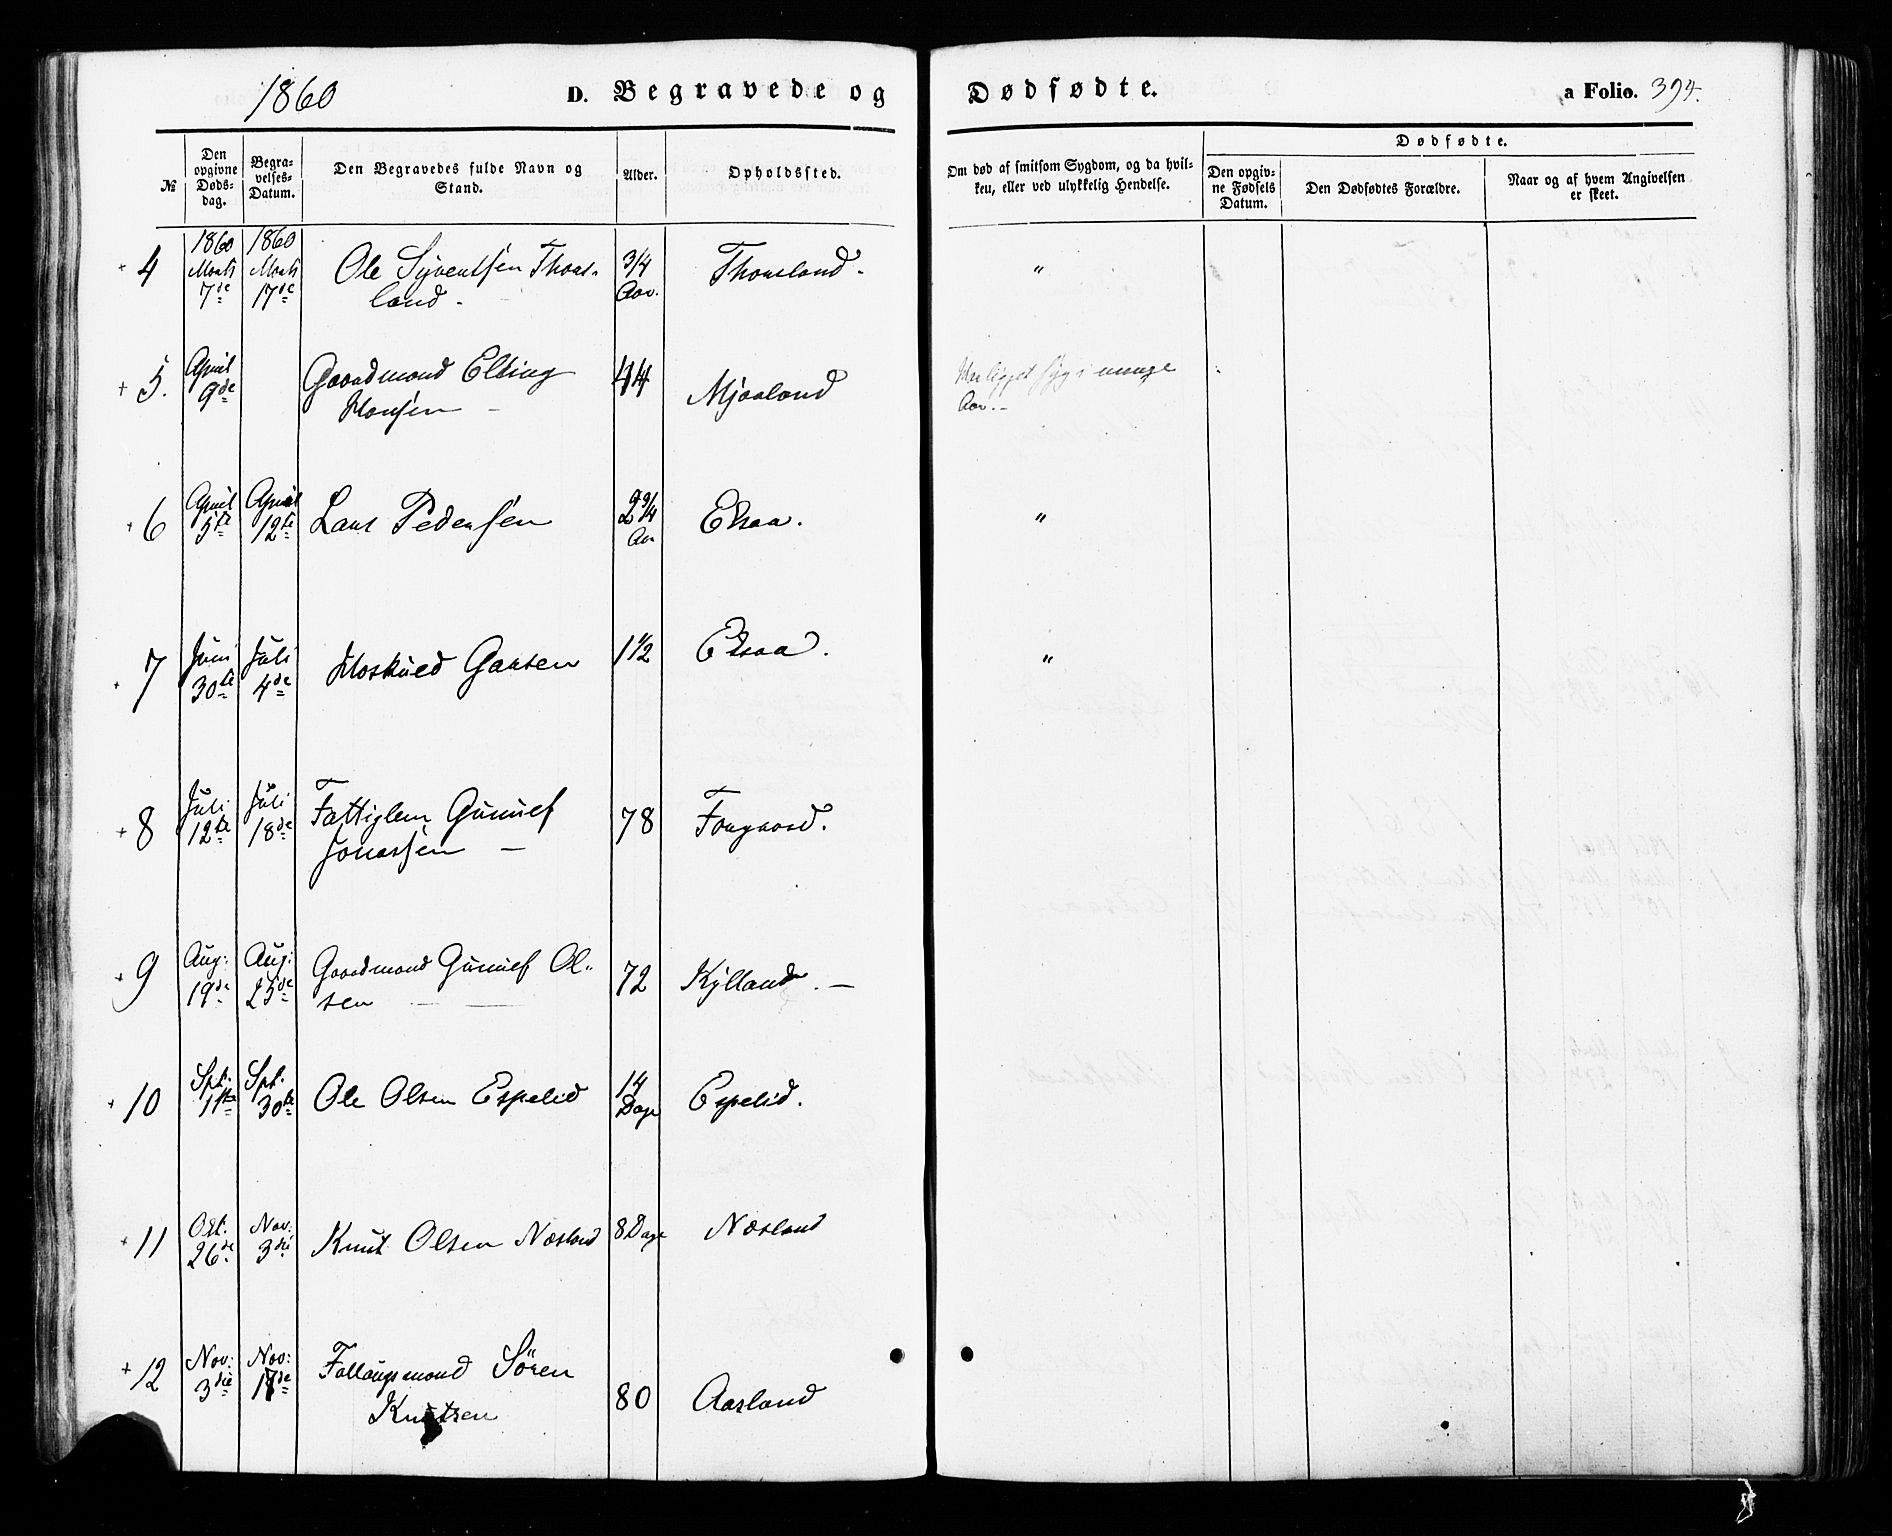 1860
D. Begravede og Dødfødte.
a Folio. 394.
№
Den opgivne Døds-dag.
Begra-velses-Datum.
Den Begravedes fulde Navn og Stand.
Alder.
Opholdssted.
Om død af smitsom Sygdom, og da hvil-ken, eller ved ulykkelig Hendelse.
Dødfødte.
Den opgiv-ne Fødsels Datum.
Den Dødfødtes Forældre.
Naar og af hvem Angivelsen er skeet.
4 1860 Marts 7de 1860 Marts 17de Ole Syventsen Thons-
land. 3/4 Aar. Thonsland. "
5. April 9de Gaardmand Elling
Hansen 44 Mjaaland syg i mange
Aar.
6 April 5te April 12te Lars Pedersen Aar Eksaa. "
7 Juni 30te Juli 4de Gausen 1 1/2 Eksaa. "
8 Juli 12te Juli 18de Fattiglem Gunulf
Jonassen 78
9 Aug: 19de Aug: 25de Gaardmand Gunulf Ol-
sen 72 Kylland.
10 Spt. 11te Spt. 30te Ole Olsen Espelid 14 Dage Espelid.
11 Okt. 26de Nov: 3die Knut Olsen Næsland 8 Dage Næsland
12 Nov: 3die Nov: 17de Søren
Knutsen 80 Aasland